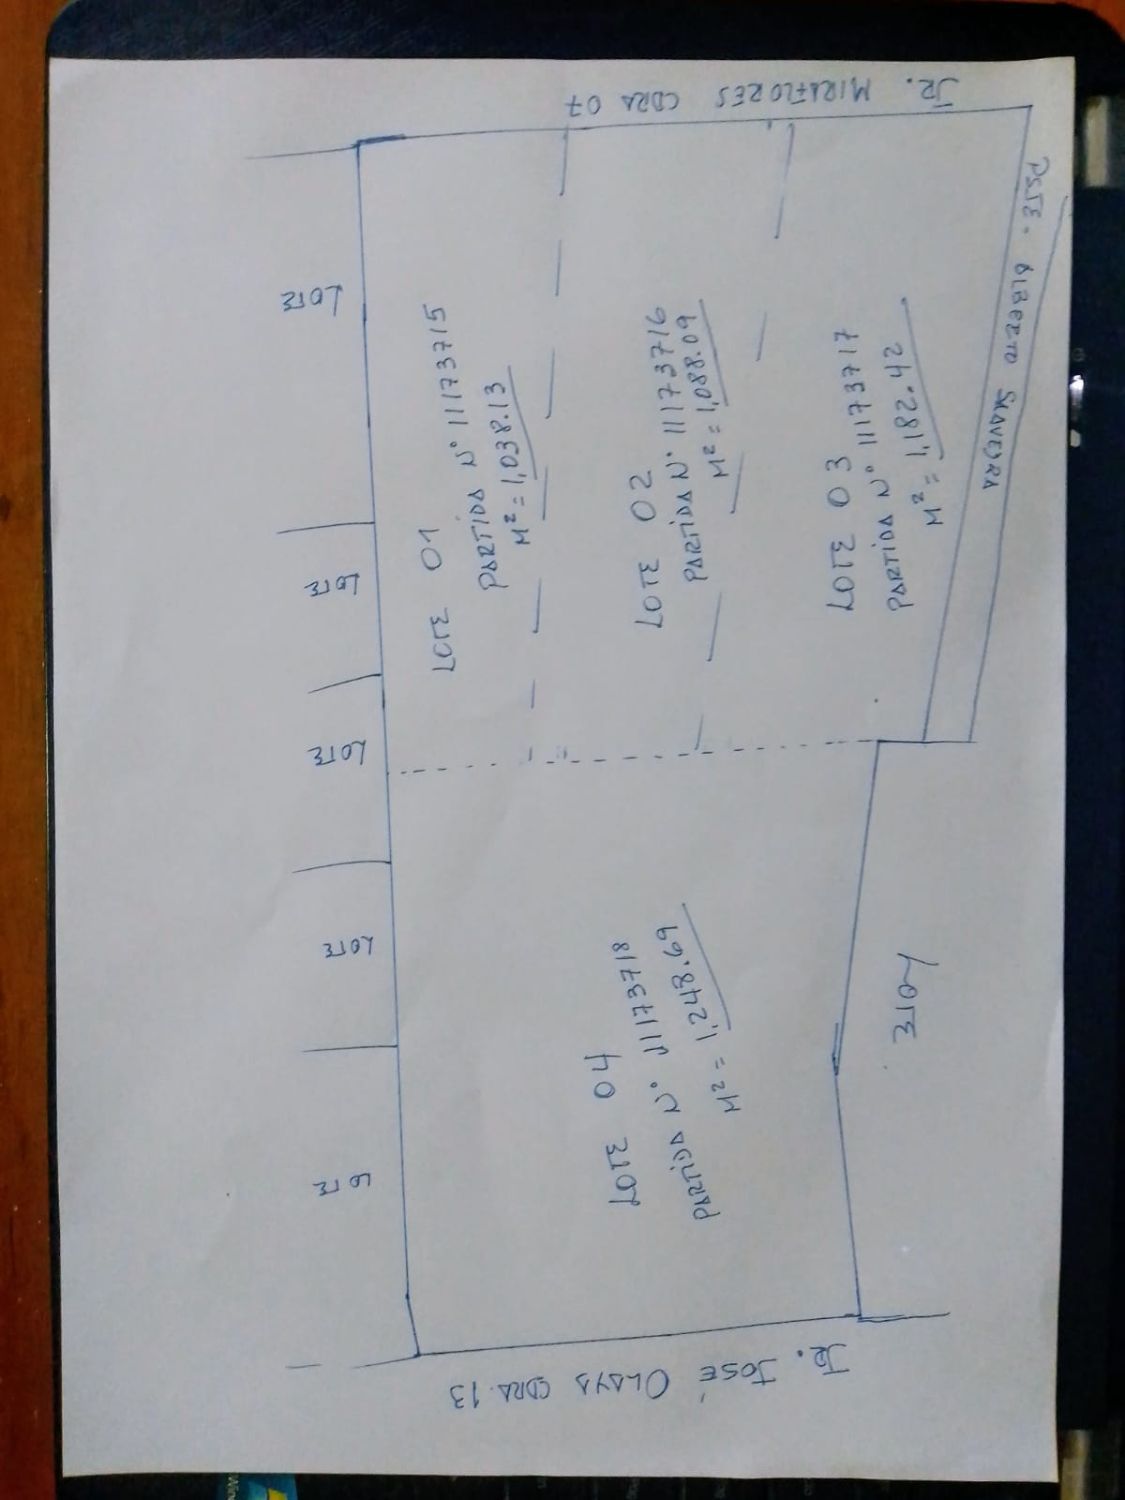 JR. MIRAFLORES CDRA 07
PSJE. ALBERTO SAAVEDRA
LOTE
LOTE
LOTE
LOTE
LOTE
LOTE 01
PARTIDA N° 11173715
M² = 1,038.13
LOTE 02
PARTIDA N° 11173716
M² = 1,088.09
LOTE 03
PARTIDA N° 11173717
M² = 1,182.42
LOTE 04
PARTIDA N° 11173718
M² = 1,248.69
LOTE
JR. JOSÉ OLAYA CDRA. 13